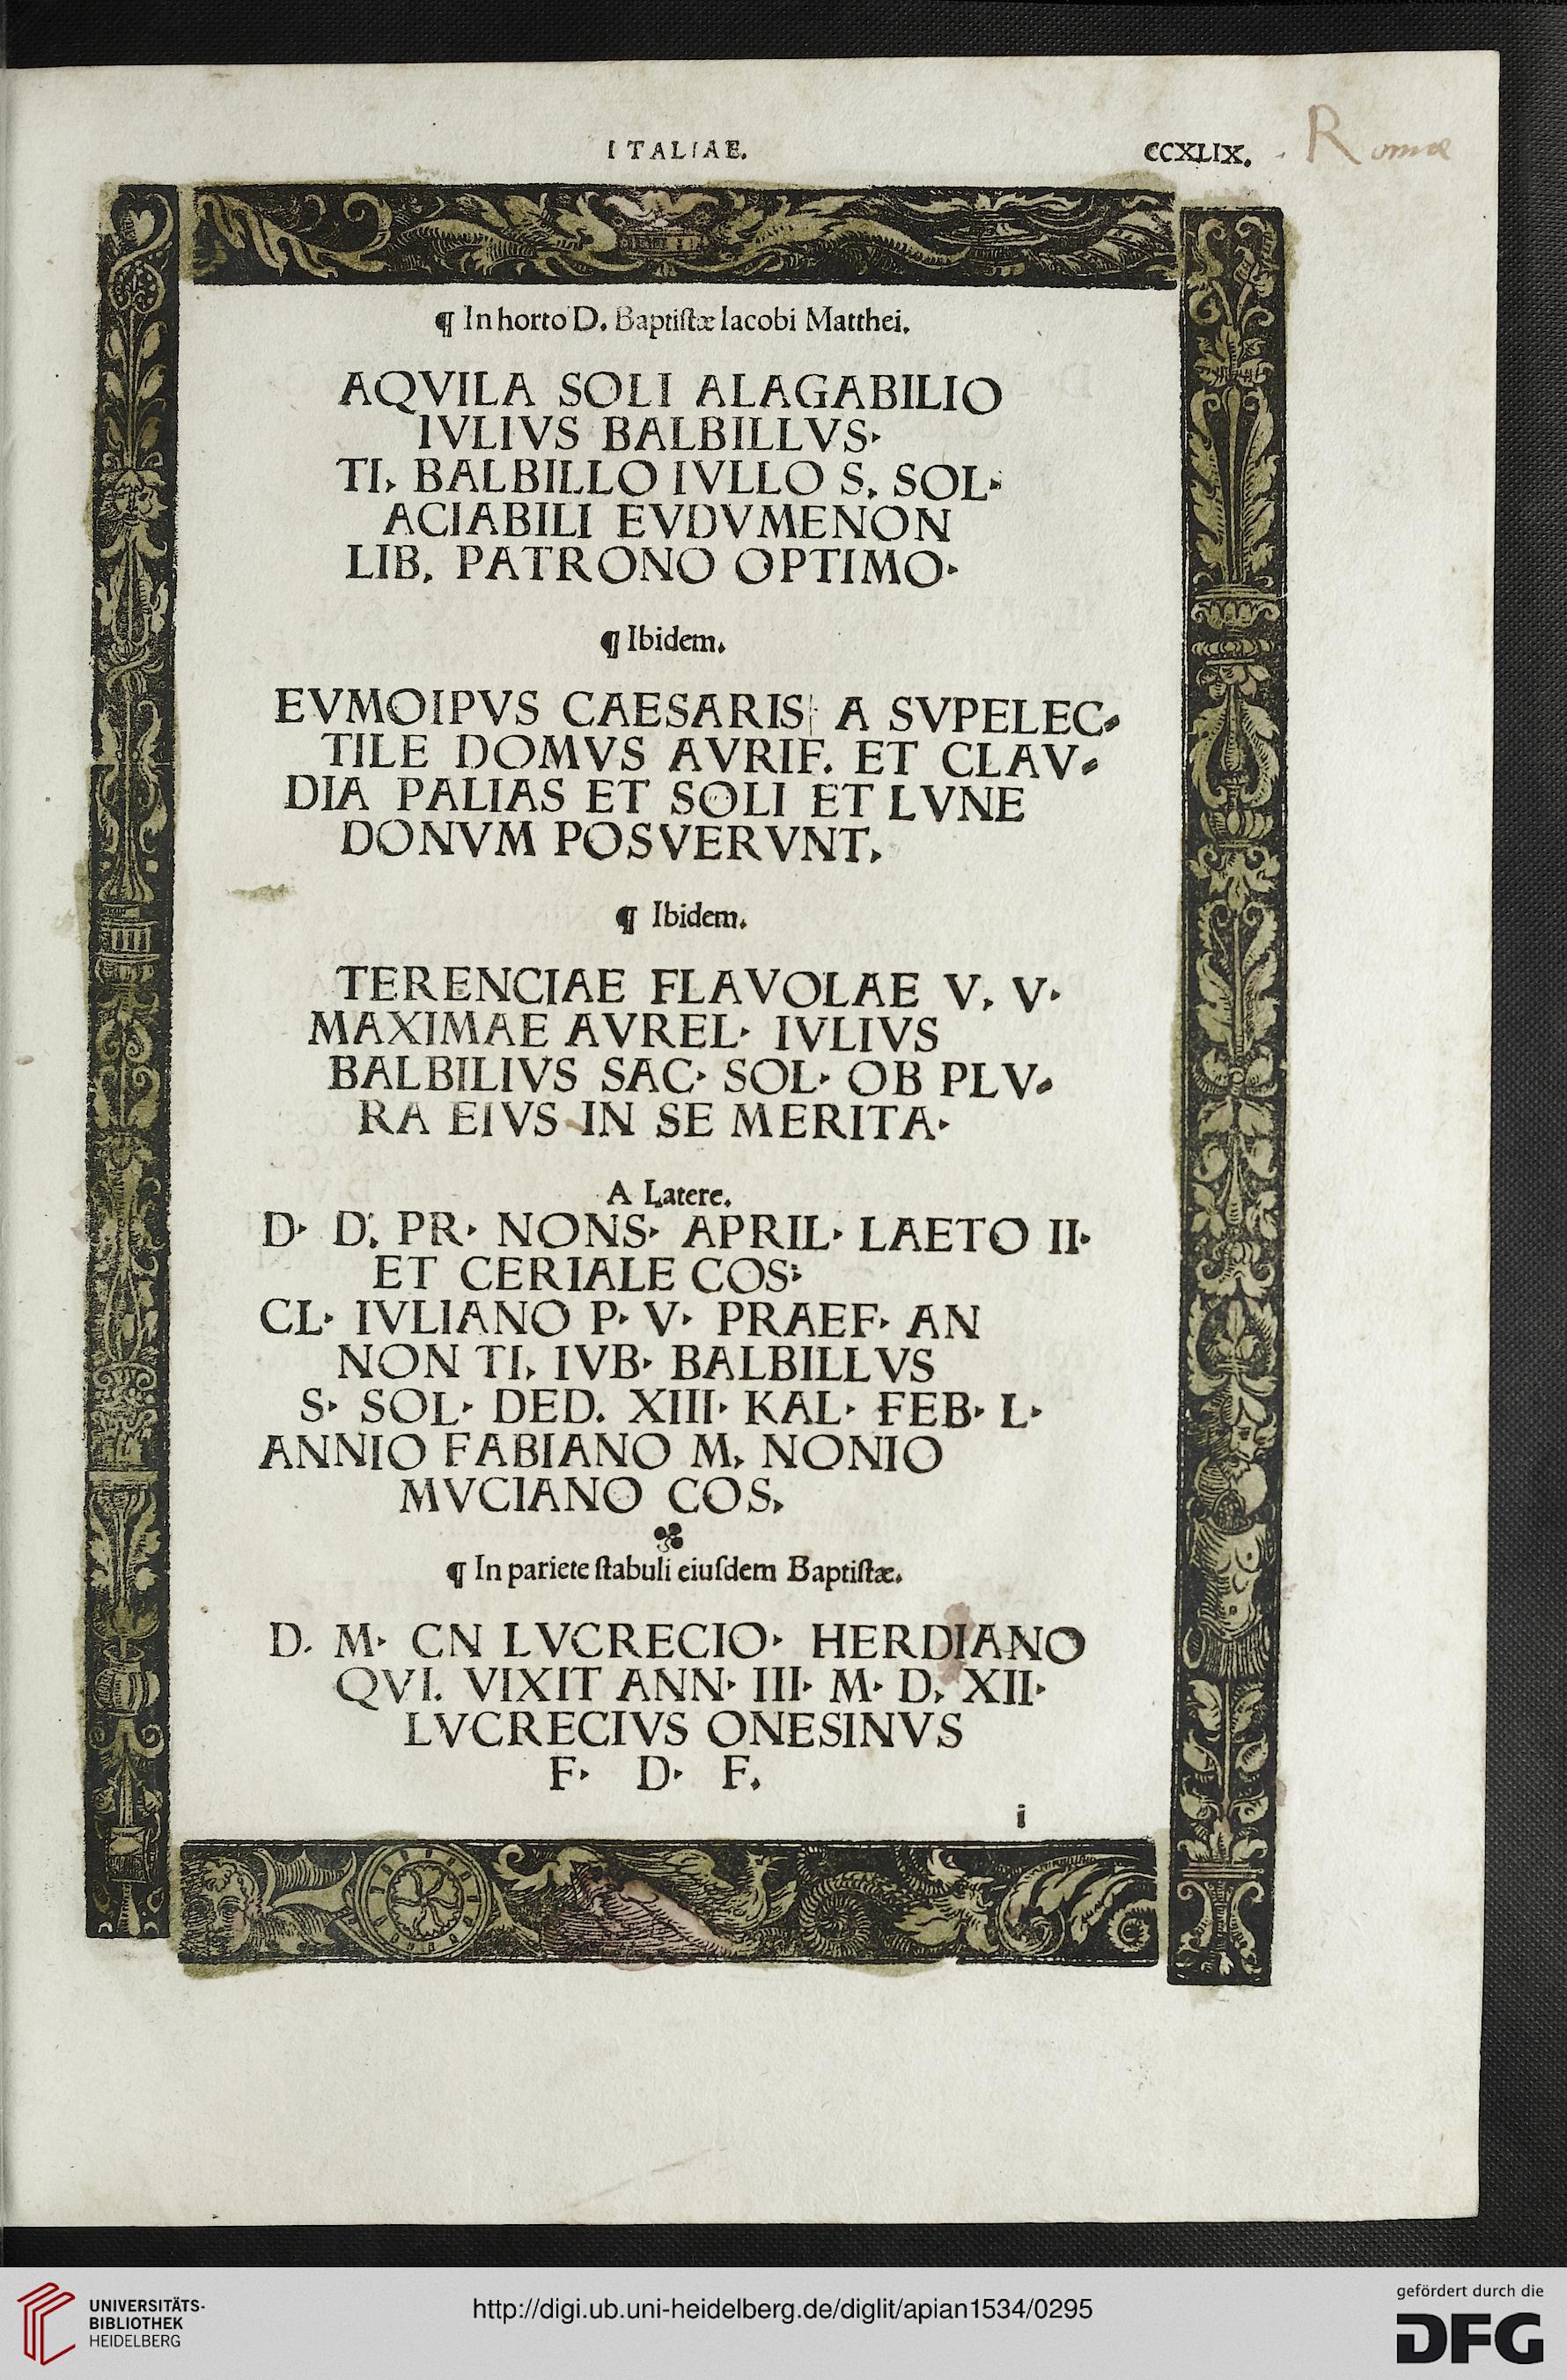 ITALIAE.
CCXLIX.
Romæ
¶ In horto D. Baptiſtæ Iacobi Matthei.
AQVILA SOLI ALAGABILIO
IVLIVS BALBILLVS·
TI, BALBILLO IVLLO S. SOL·
ACIABILI EVDVMENON
LIB. PATRONO OPTIMO·
¶ Ibidem.
EVMOIPVS CAESARIS A SVPELEC⸗
TILE DOMVS AVRIF. ET CLAV⸗
DIA PALIAS ET SOLI ET LVNE
DONVM POSVERVNT,
¶ Ibidem.
TERENCIAE FLAVOLAE V, V·
MAXIMAE AVREL· IVLIVS
BALBILIVS SAC· SOL· OB PLV⸗
RA EIVS IN SE MERITA·
A Latere.
D· D. PR· NONS· APRIL· LAETO II·
ET CERIALE COS:
CL· IVLIANO P· V· PRAEF· AN
NON TI, IVB· BALBILLVS
S· SOL· DED. XIII· KAL· FEB· L·
ANNIO FABIANO M, NONIO
MVCIANO COS,
¶ In pariete ſtabuli eiuſdem Baptiſtæ.
D. M· CN LVCRECIO· HERDIANO
QVI. VIXIT ANN· III· M· D, XII·
LVCRECIVS ONESINVS
F· D· F.
i
UNIVERSITÄTS-
BIBLIOTHEK
HEIDELBERG
http://digi.ub.uni-heidelberg.de/diglit/apian1534/0295
gefördert durch die
DFG